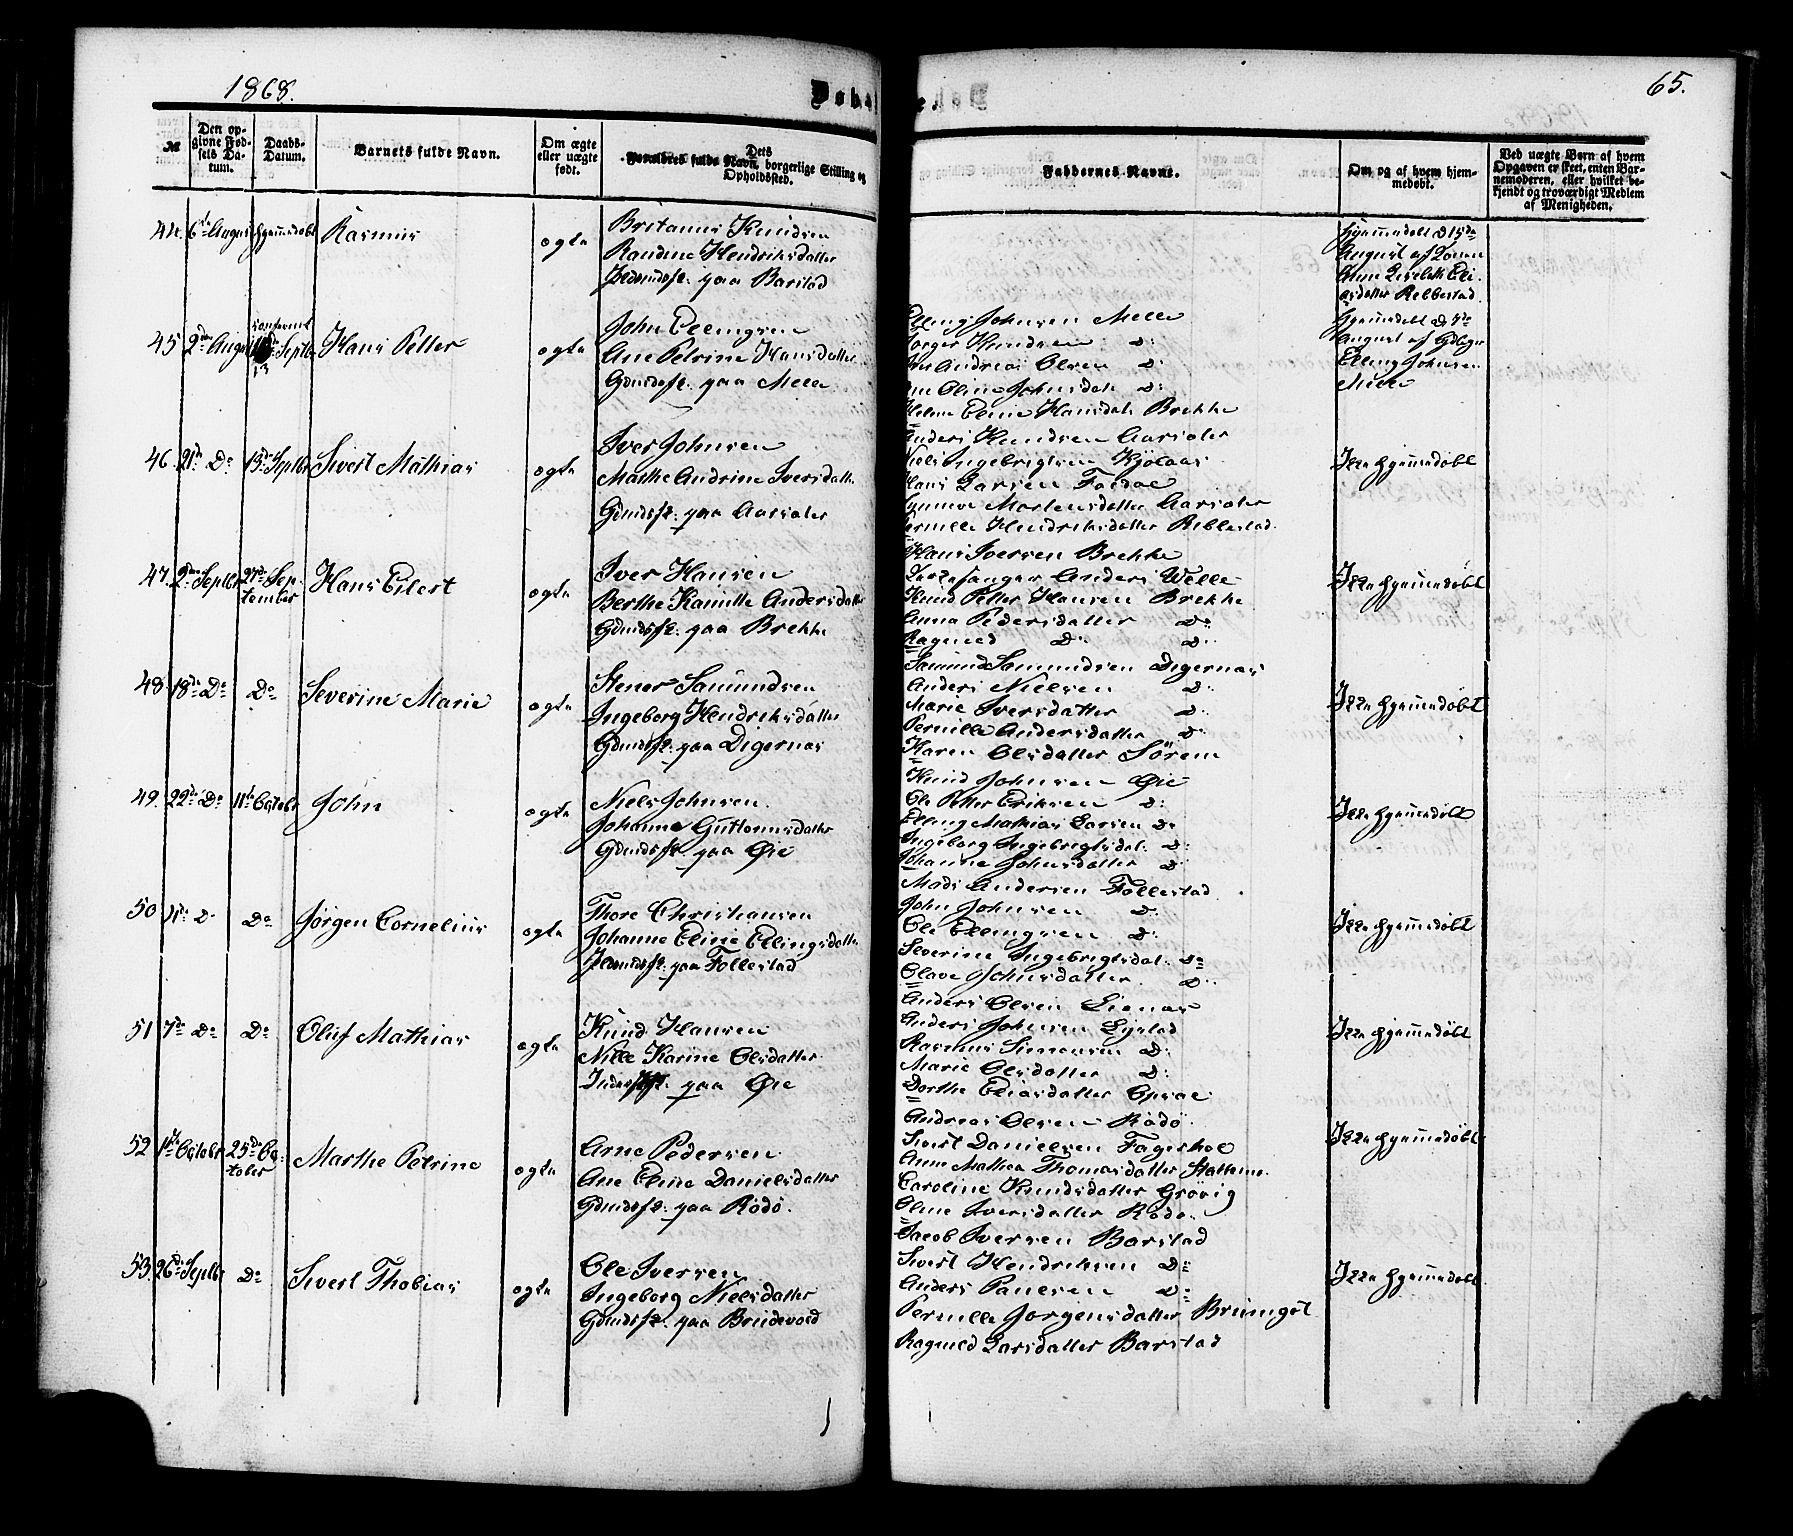 1868.
65.
№
Den op-
givne Fød-
sels Da-
tum.
Daabs-
Datum.
Barnets fulde Navn.
Om ægte
eller uægte
født.
Dets
Forældres fulde Navn, borgerlige Stilling og
Opholdssted.
Faddernes Navne.
Om og af hvem hjem-
medøbt.
Ved uægte Børn af hvem
Opgaven er skeet, enten Bar-
nemoderen, eller hvilket be-
kjendt og troværdigt Medlem
af Menigheden.
44. 6te August hjemmedøbt Rasmus
ægte
Britanus Knudsen
Randine Hendriksdatter
Gaardsf. paa Barstad
Hjemmedøbt D
August af
Eli-
asdatter Rebbestad
45 2den August
Septbr
Hans Petter
ægte
John Ellingsen
Ane Petrine Hansdatter
Gdmdsf. paa Melle
Elling Johnsen Melle
Knudsen Do
Andreas Olsen Do
Oline Johnsdatt. Do
Helene Eline Hansdatt. Brekke
Hjemmedøbt D
August af Gdbgr
Elling Johnsen
Melle
46. 21de Do 13de Septbr Sivert Mathias
ægte
Iver Johnsen
Marthe Andrine Iversdatter
Gdmdsf. paa Aarsæter
Anders Knudsen Aarsæter
Niels Ingebrigtsen Kjølaas
Hans Larsen Foldal
Martensdatter Aarsæter
Pernille Hendriksdatter Rebbestad
Ikke hjemmedøbt
47. 2den Septbr 27de Sep-
tember
Hans Eilert
ægte
Iver Hansen
Berthe Kamille Andersdatter
Gdmdsf. paa Brekke
Hans Iversen Brekke
Kirkesanger Anders Welle
Knud Petter Hansen Brekke
Anna Pedersdatter Do
Ragnild Do Do
Ikke hjemmedøbt
48. 18de Do Do Severine Marie
ægte
Stener Samundsen
Ingeborg Hendriksdatter
Gdmdsf. paa Digernæs
Samund Samundsen Digernæs
Anders Nielsen Do
Marie Iversdatter Do
Pernille Andersdatter Do
Karen Olsdatter Sørem
Ikke hjemmedøbt
49. 22de Do 11te Octobr John
ægte
Niels Johnsen
Johanne Guttormsdatter
Gdmdsf. paa Øie
Knud Johnsen Øie
Ole Petter Eriksen Do
Elling Mathias Larsen Do
Ingeborg Ingebrigtsdat. Do
Johanne Johnsdatter Do
Ikke hjemmedøbt
50 11te Do Do Jørgen Cornelius
ægte
Thore Christiansen
Johanne Eline Ellingsdatter
Gaardsf. paa Follestad
Mads Andersen Follestad
John Johnsen Do
Ole Ellingsen Do
Severine Ingebrigtsdat. Do
Olave Johnsdatter Do
Ikke hjemmedøbt
51 7de Do Do Oluf Mathias
ægte
Knud Hansen
Nille Karine Olsdatter
Inderstsf. paa Øie
Anders Olsen Lienæs
Anders Johnsen Lystad
Rasmus Simonsen Do
Marie Olsdatter Do
Dorthe Eliasdatter Opsal
Ikke hjemmedøbt
52 1ste Octobr 25de Oc-
tober
Marthe Petrine
ægte
Arne Pedersen
Ane Eline Danielsdatter
Gdmdsf. paa Rødø.
Andreas Olsen Rødø
Sivert Danielsen Fagerhol
Anne Mathea Thomasdatter Stattene
Caroline Knudsdatter Grøvig
Oline Iversdatter Rødø
Ikke hjemmedøbt
53. 26de Septbr Do Sivert Thobias
ægte
Ole Iversen
Ingeborg Nielsdatter
Gdmdsf. paa Brudevold
Jacob Iversen Barstad
Sivert Hendriksen Do
Anders Paulsen Do
Pernille Jørgensdatter Brungot
Ragnild Larsdatter Barstad
Ikke hjemmedøbt